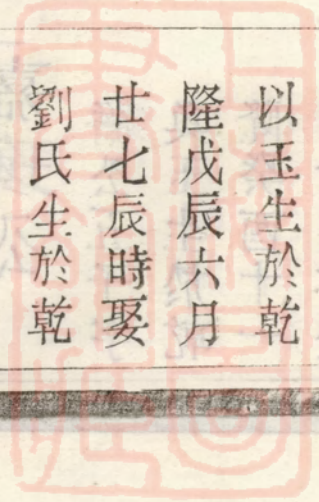 以玉生於乾
隆戊辰六月
廿七辰時娶
劉氏生於乾